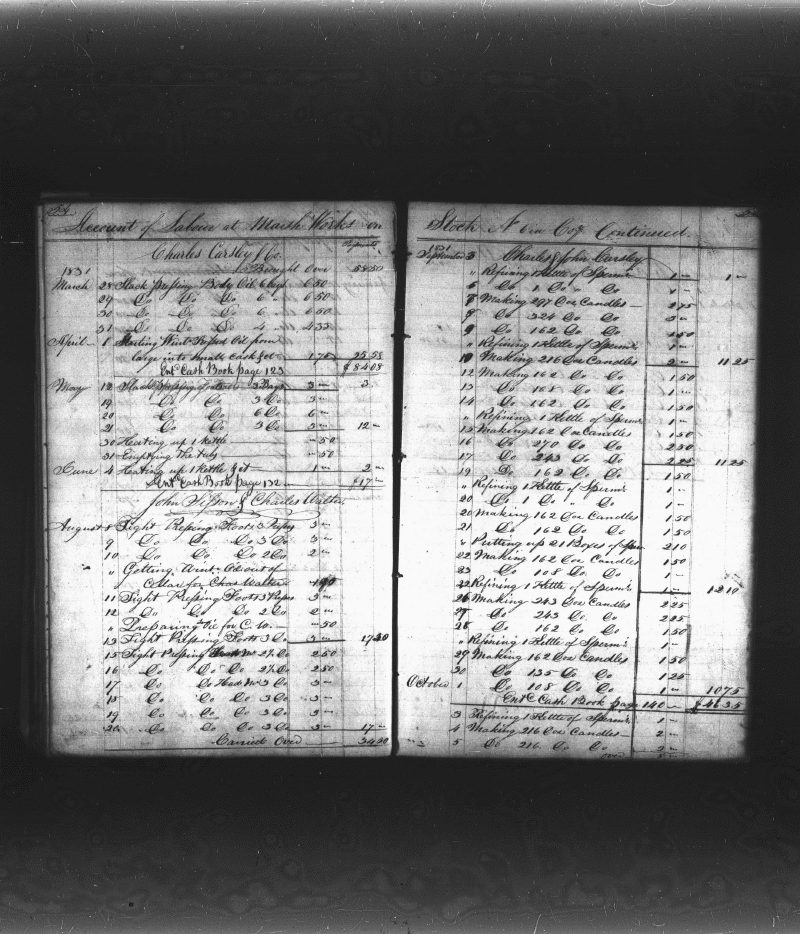 54
Account of Labour at Marsh Works on
Charles Carsley & Co.
1831 Brought Over 58 50
March 28 Slack Pressing Body Oil 6 6 50
29 Do Do Do 6 – 6 50
30 Do Do Do 6 – 6 50
31 Do Do Do 4 – 4 33
April 1 Starting Oil from
large into small Cask 1 75 25 58
Ent Cash Book page 123 $84 08
May 12 Slack pressing 3 Bags 3 – 3
19 Do Do 3 Do 3 –
20 Do Do 6 Do 6 –
21 Do Do 3 Do 3 – 12 –
30 Heating up 1 kettle – 50
31 Emptying the tubs – 50
June 4 Heating up 1 Kettle 1 – 2 –
Ent Cash Book page 132 $17 –
John & Charles
August 8 Tight Pressing Foots 3 3 –
9 Do Do Do 3 Do 3 –
10 Do Do Do 2 Do 2 –
" Getting Wint. Oil out of
Cellar for Chas Walker
11 Tight Pressing Foots 3 3 –
12 Do Do Do 2 Do 2 –
" Preparing Oil for C. W. – 50
13 Tight Pressing Foots 3 Do 3 –
15 Tight Pressing 2½ Do 2 50
16 Do Do Do 2½ Do 2 50
17 Do Do 3 Do 3 –
18 Do Do Do 3 Do 3 –
19 Do Do Do 3 Do 3 –
20 Do Do Do 3 Do 3 – 17 –
Carried Over
Stock Continued
1831
September 3 Charles & John Carsley
" Refining 1 Kettle of Sperm 1 – 1 –
6 Do 1 Do Do 1 –
Making 297 Doz Candles 2 75
8 Do 324 Do Do 3 –
9 Do 162 Do Do 1 50
" Refining 1 Kettle of Sperm 1 –
10 Making 216 Doz Candles 2 – 11 25
12 Making 162 Do Do 1 50
13 Do Do Do
14 Do 162 Do Do 1 50
" Refining 1 Kettle of Sperm 1 –
15 Making 162 Doz Candles 1 50
16 Do 270 Do Do 2 50
17 Do 243 Do Do 2 25 11 25
19 Do 162 Do Do 1 50
" Refining 1 Kettle of Sperm 1 –
20 Do 1 Do " Do 1 –
20 Making 162 Doz Candles 1 50
21 Do 162 Do Do 1 50
" Putting up 21 Boxes of 2 10
22 Making 162 Doz Candles 1 50
23 Do 108 Do Do 1 –
Refining 1 Kettle of Sperm 1 – 12 10
26 Making 243 Doz Candles 2 25
27 Do 243 Do Do 2 25
28 Do 162 Do Do 1 50
" Refining 1 Kettle of Sperm 1 –
29 Making 162 Doz Candles 1 50
30 Do 135 Do Do 1 25
October 1 Do 108 Do Do 1 – 10 75
Ent Cash Book page 140 – $46 35
3 Refining 1 Kettle of Sperm 1 –
4 Making 216 Doz Candles 2 –
5 Do 216 Do Do 2 –
over